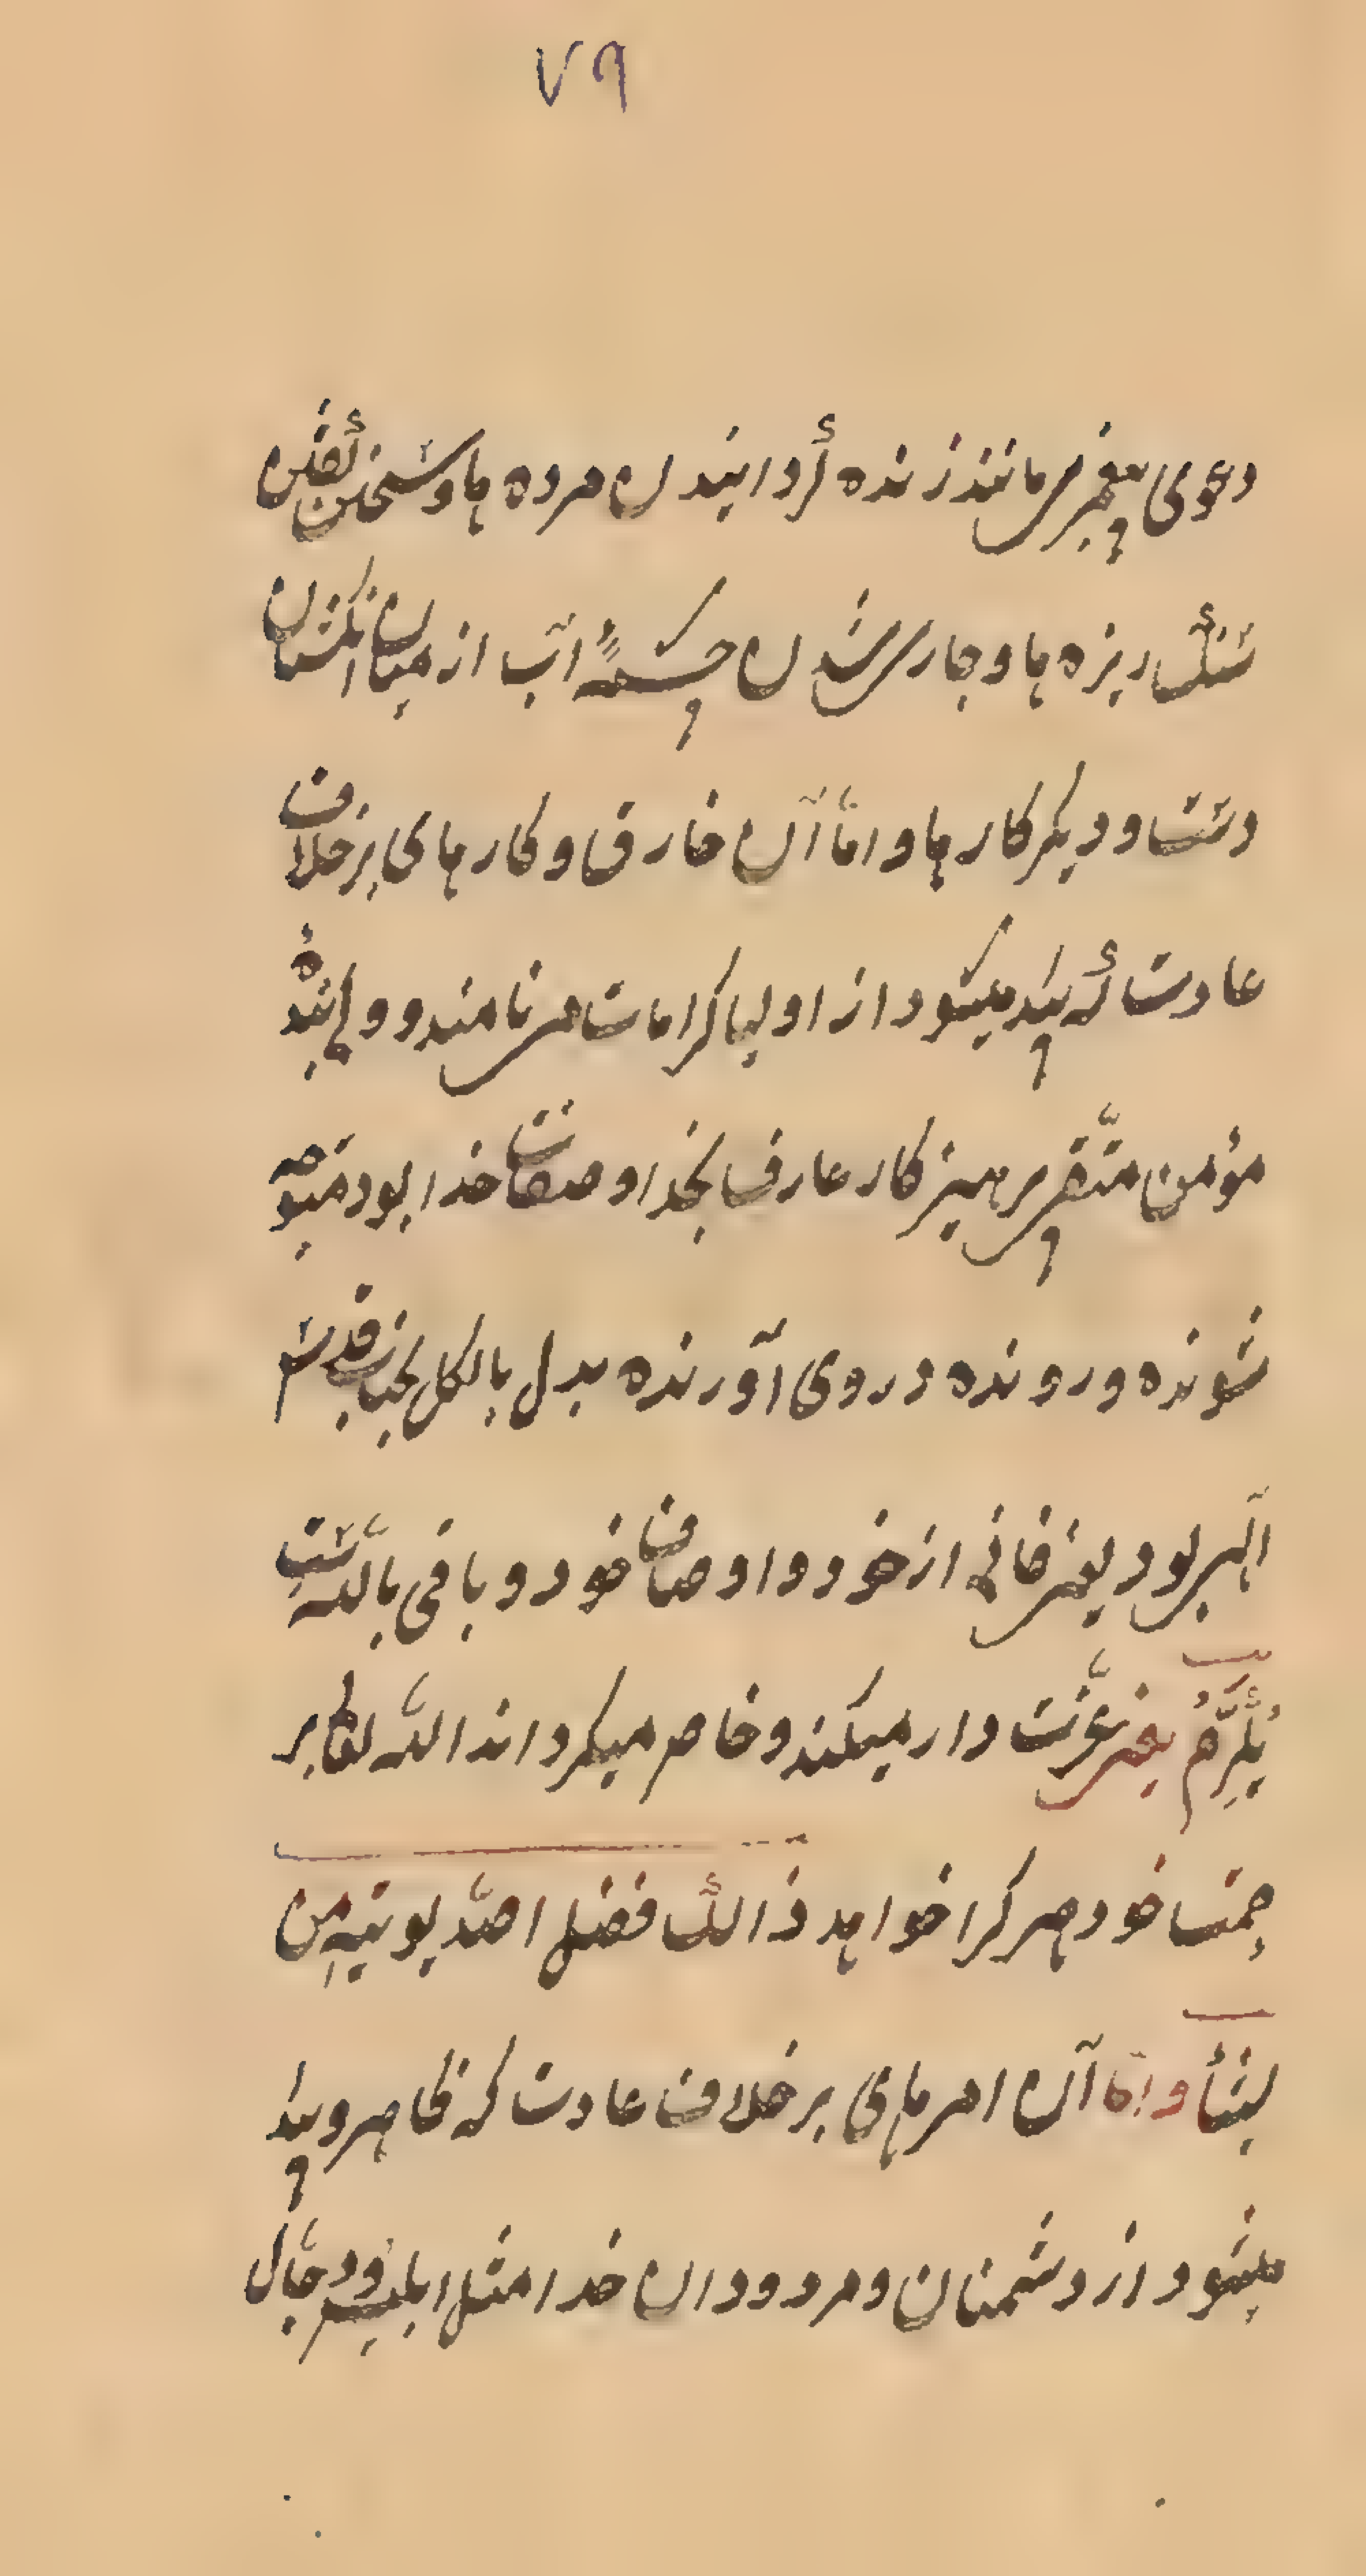 ۷۹
دعوی پیغمبری مانند زنده گردانیدن مرده ها و سخن گفتن
سنگ ریزه ها و جاری شدن چشمهٔ آب از میان انگشتان
دست و دیگر کارها و امّا آن خارق و کارهای برخلاف
عادت که پیدا میشود از اولیا کرامات می نامند و ولی بندهٔ
مؤمن متّقی پرهیزکار عارف بخدا و صفات خدا بود متوجّه
شونده و رونده و روی آورنده بدل بالکل بجناب قدس
الٓهی بود یعنی فانی از خود و اوصاف خود و باقی باللّه است
یُکَرِّمُ یعنی عزّت دار میکند و خاص میگرداند اللّه تعالی بر
حمت خود هر کرا خواهد ذالک فضل اللّه یوتیه من
یشأ و امّا آن امرهای برخلاف عادت که ظاهر و پیدا
میشود از دشمنان و مردودان خدا مثل ابلیس و دجّال